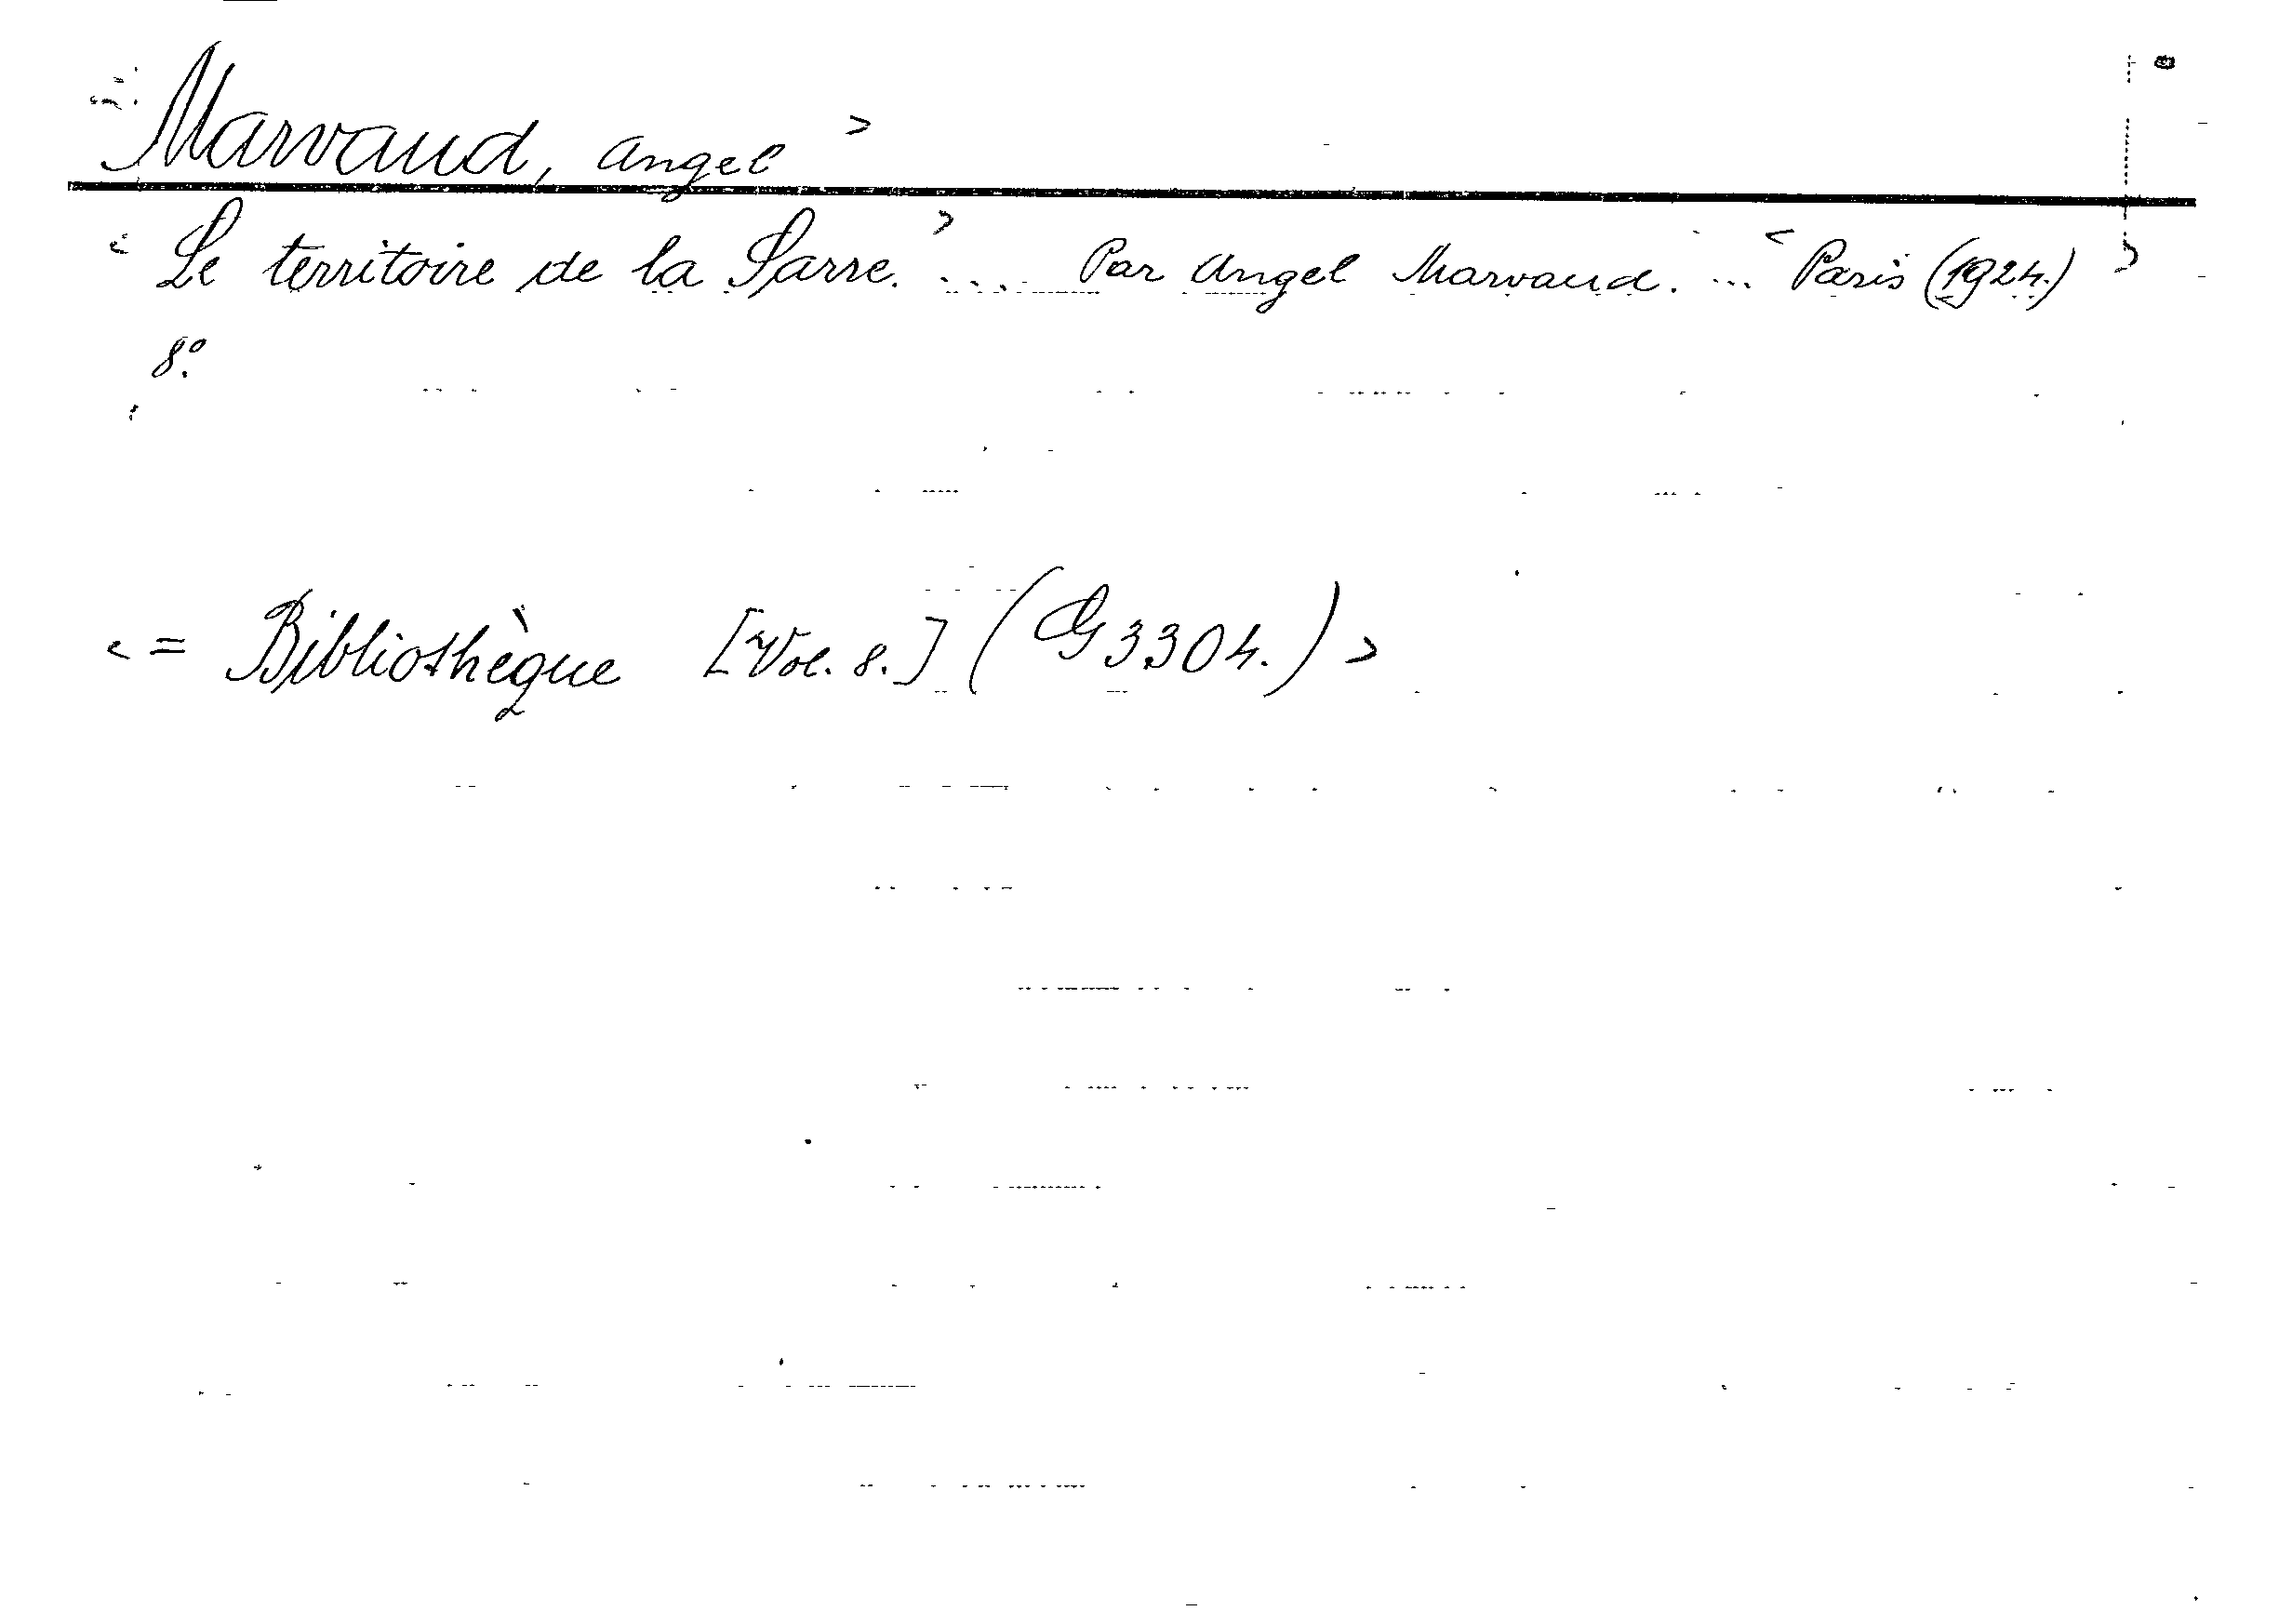 Marvaud, Angel >
< Le territoire de la Sarre. > .... Par Angel Marvaud. ... < Paris (1924.) >
8°.
< = Bibliothèque [Vol. 8.] (G 3304.) >